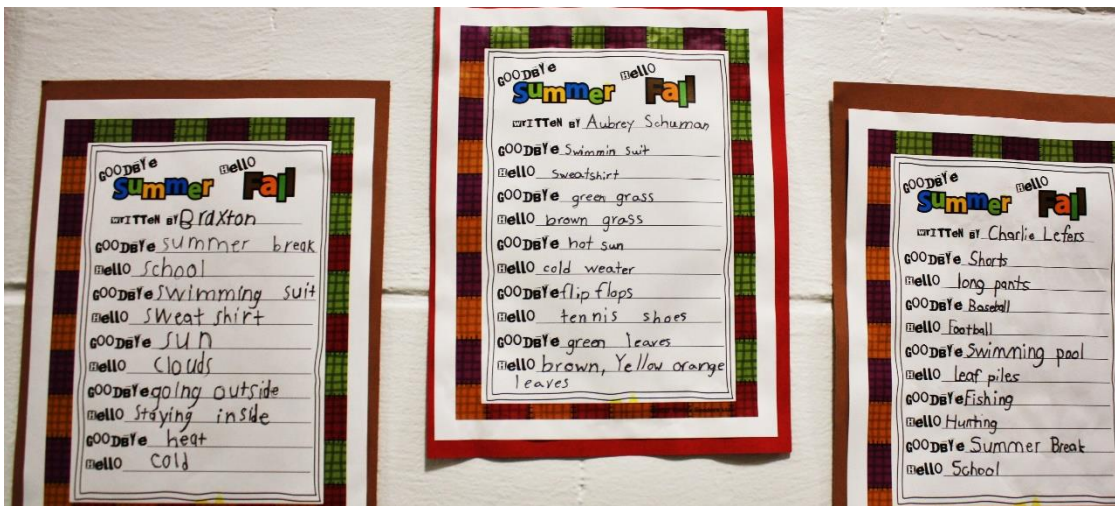 GOODBYE Hello
Summer Fall
WRITTEN BY Braxton
GOODBYE summer break
Hello School
GOODBYE Swimming suit
Hello sweat shirt
GOODBYE sun
Hello clouds
GOODBYE going outside
Hello staying inside
GOODBYE heat
Hello cold
GOODBYE Hello
Summer Fall
WRITTEN BY Aubrey Schuman
GOODBYE Swimmin suit
Hello sweatshirt
GOODBYE green grass
Hello brown grass
GOODBYE hot sun
Hello cold weater
GOODBYE flip flops
Hello tennis shoes
GOODBYE green leaves
Hello brown, Yellow orange
leaves
GOODBYE Hello
Summer Fall
WRITTEN BY Charlie Lefers
GOODBYE Shorts
Hello long pants
GOODBYE Baseball
Hello Football
GOODBYE Swimming pool
Hello leaf piles
GOODBYE Fishing
Hello Hunting
GOODBYE Summer Break
Hello School